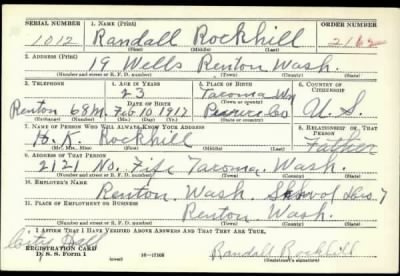 SERIAL NUMBER 1. NAME (Print) ORDER NUMBER
1012 Randall Rockhill 2162
(First) (Middle) (Last)
2. ADDRESS (Print)
19 Wells Renton Wash.
(Number and street or R. F. D. number) (Town) (County) (State)
3. TELEPHONE 4. AGE IN YEARS 5. PLACE OF BIRTH 6. COUNTRY OF CITIZENSHIP
23 Tacoma Wn
DATE OF BIRTH (Town or county)
Renton 68M Feb 10 1917 Pierce Co U. S.
(Exchange) (Number) (Mo.) (Day) (Yr.) (State or country)
7. NAME OF PERSON WHO WILL ALWAYS KNOW YOUR ADDRESS 8. RELATIONSHIP OF THAT PERSON
Rockhill Father
(Mr., Mrs., Miss) (First) (Middle) (Last)
9. ADDRESS OF THAT PERSON
2121 No. Fife Tacoma, Wash.
(Number and street or R. F. D. number) (Town) (County) (State)
10. EMPLOYER'S NAME
Renton, Wash. School Dis. 7
11. PLACE OF EMPLOYMENT OR BUSINESS
Renton, Wash.
(Number and street or R. F. D. number) (Town) (County) (State)
I AFFIRM THAT I HAVE VERIFIED ABOVE ANSWERS AND THAT THEY ARE TRUE.
City Hall
REGISTRATION CARD
D. S. S. Form 1 (over) 16—17105 Randall Rockhill
(Registrant's signature)